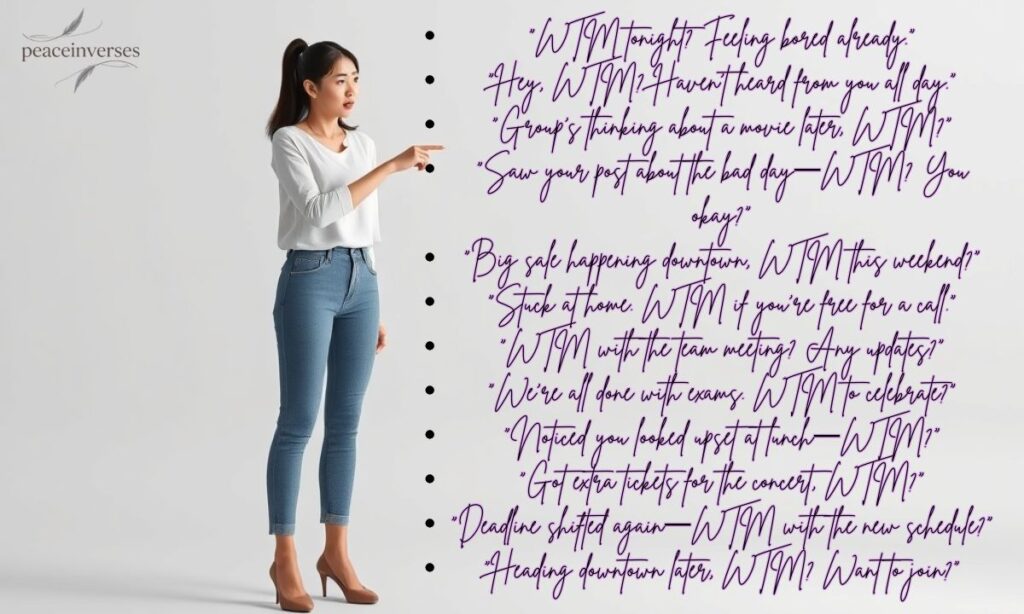 peaceinverses
"WTM tonight? Feeling bored already."
"Hey, WTM? Haven't heard from you all day."
"Group's thinking about a movie later, WTM?"
"Saw your post about the bad day—WTM? You
okay?"
"Big sale happening downtown, WTM this weekend?"
"Stuck at home. WTM if you're free for a call."
"WTM with the team meeting? Any updates?"
"We're all done with exams. WTM to celebrate?"
"Noticed you looked upset at lunch—WTM?"
"Got extra tickets for the concert, WTM?"
"Deadline shifted again—WTM with the new schedule?"
"Heading downtown later, WTM? Want to join?"